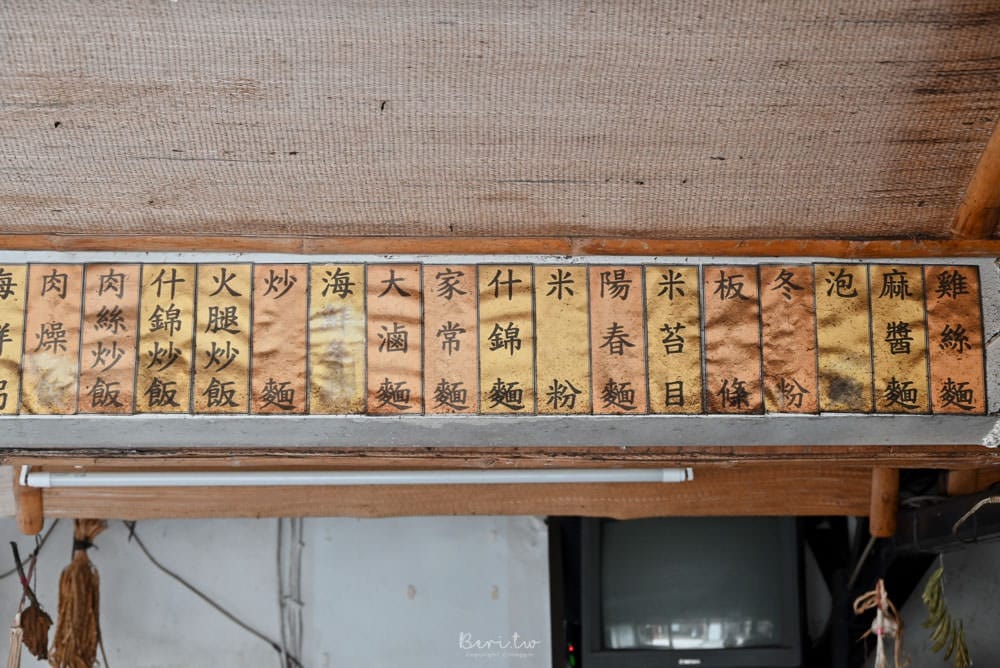 雞絲麵
麻醬麵
泡
冬粉
板條
米苔目
陽春麵
米粉
什錦麵
家常麵
大滷麵
海鮮
炒麵
火腿炒飯
什錦炒飯
肉絲炒飯
肉燥
海鮮粥
Beri.tw